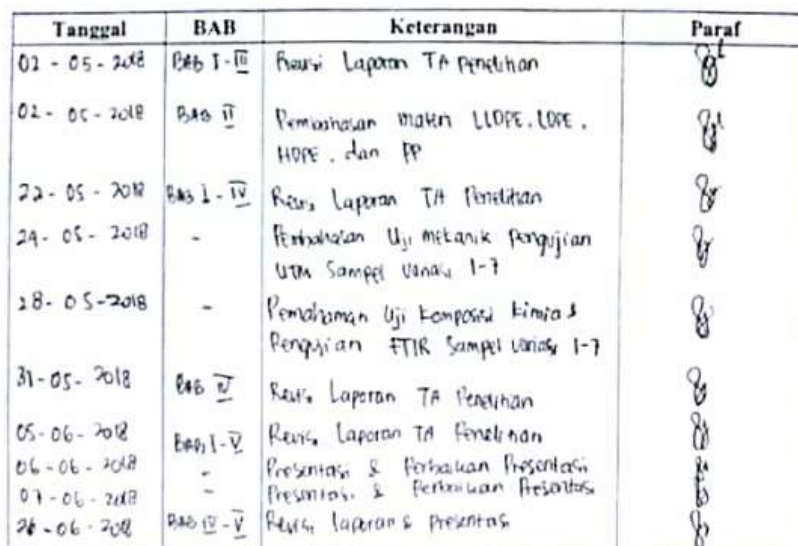 Tanggal BAB Keterangan Paraf
02 - 05 - 2018 BAB I - III Revisi Laporan TA penelitian
02 - 05 - 2018 BAB II Pembahasan materi LLDPE, LDPE,
HDPE, dan PP
22 - 05 - 2018 BAB I - IV Revisi Laporan TA Penelitian
24 - 05 - 2018 - Pembahasan Uji mekanik Pengujian
UTM Sampel variasi 1-7
28 - 05 - 2018 - Pemahaman Uji Komposisi Kimia &
Pengujian FTIR Sampel variasi 1-7
31 - 05 - 2018 BAB IV Revisi Laporan TA Penelitian
05 - 06 - 2018 BAB I - V Revisi Laporan TA Penelitian
06 - 06 - 2018 - Presentasi & Perbaikan Presentasi
07 - 06 - 2018 - Presentasi & Perbaikan Presentasi
06 - 2018 BAB IV - V Revisi laporan & presentasi